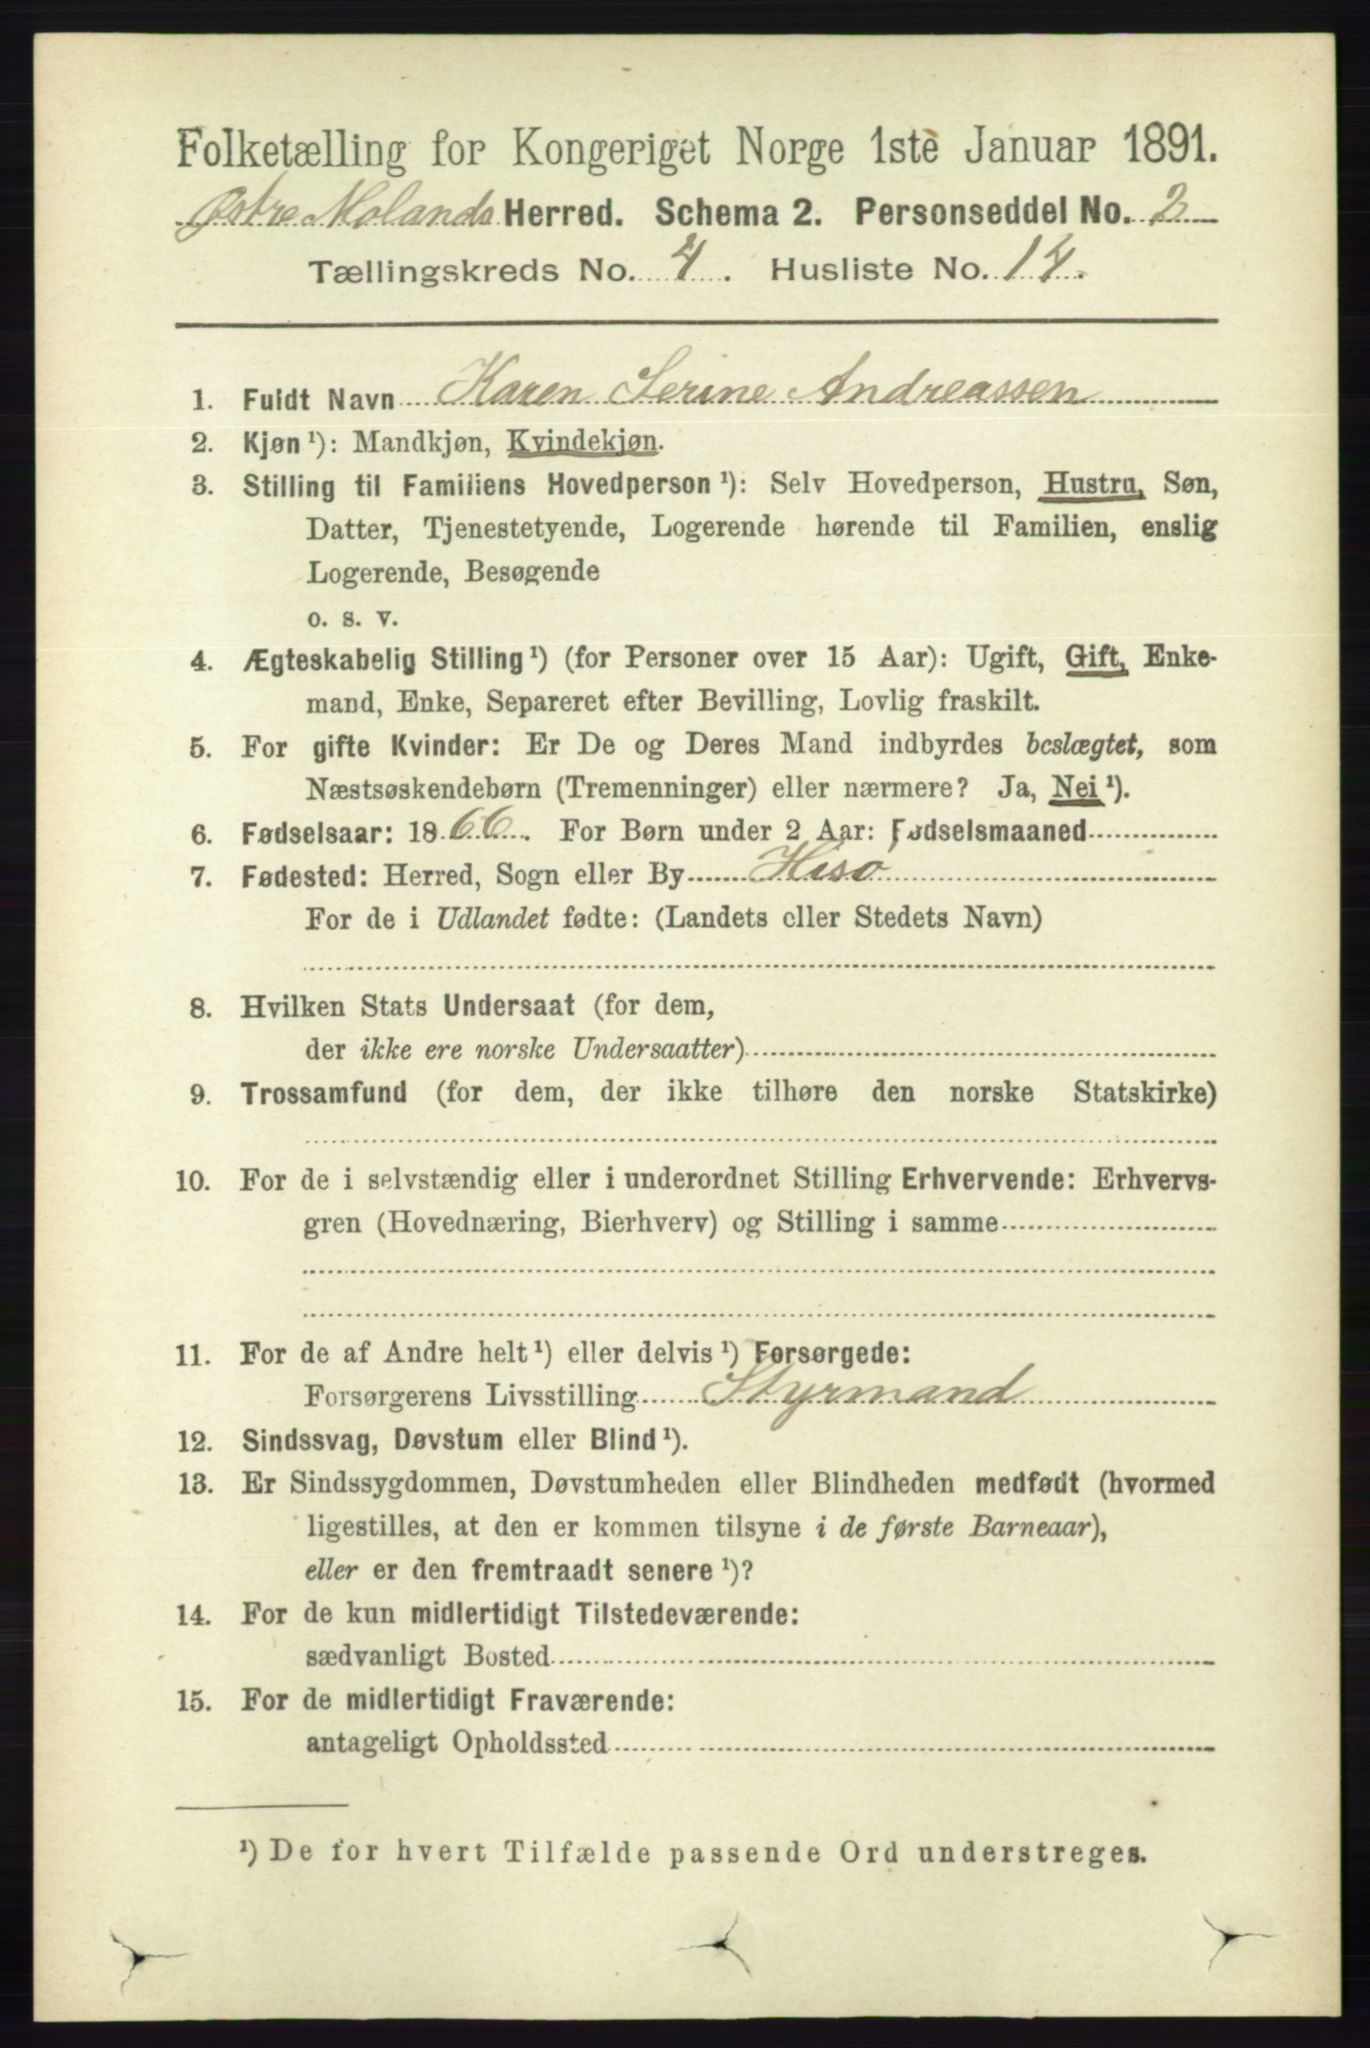 Folketælling for Kongeriget Norge 1ste Januar 1891.
Østre Molands Herred. Schema 2. Personseddel No. 2
Tællingskreds No. 4. Husliste No. 14.
1. Fuldt Navn Karen Serine Andreassen
2. Kjøn¹): Mandkjøn, Kvindekjøn.
3. Stilling til Familiens Hovedperson¹): Selv Hovedperson, Hustru, Søn,
Datter, Tjenestetyende, Logerende hørende til Familien, enslig
Logerende, Besøgende
o. s. v.
4. Ægteskabelig Stilling¹) (for Personer over 15 Aar): Ugift, Gift, Enke-
mand, Enke, Separeret efter Bevilling, Lovlig fraskilt.
5. For gifte Kvinder: Er De og Deres Mand indbyrdes beslægtet, som
Næstsøskendebørn (Tremenninger) eller nærmere? Ja, Nei¹).
6. Fødselsaar: 1866. For Børn under 2 Aar: Fødselsmaaned
7. Fødested: Herred, Sogn eller By Hisø
For de i Udlandet fødte: (Landets eller Stedets Navn)
8. Hvilken Stats Undersaat (for dem,
der ikke ere norske Undersaatter)
9. Trossamfund (for dem, der ikke tilhøre den norske Statskirke)
10. For de i selvstændig eller i underordnet Stilling Erhvervende: Erhvervs-
gren (Hovednæring, Bierhverv) og Stilling i samme
11. For de af Andre helt¹) eller delvis¹) Forsørgede:
Forsørgerens Livsstilling Styrmand
12. Sindssvag, Døvstum eller Blind¹).
13. Er Sindssygdommen, Døvstumheden eller Blindheden medfødt (hvormed
ligestilles, at den er kommen tilsyne i de første Barneaar),
eller er den fremtraadt senere¹)?
14. For de kun midlertidigt Tilstedeværende:
sædvanligt Bosted
15. For de midlertidigt Fraværende:
antageligt Opholdssted
¹) De for hvert Tilfælde passende Ord understreges.